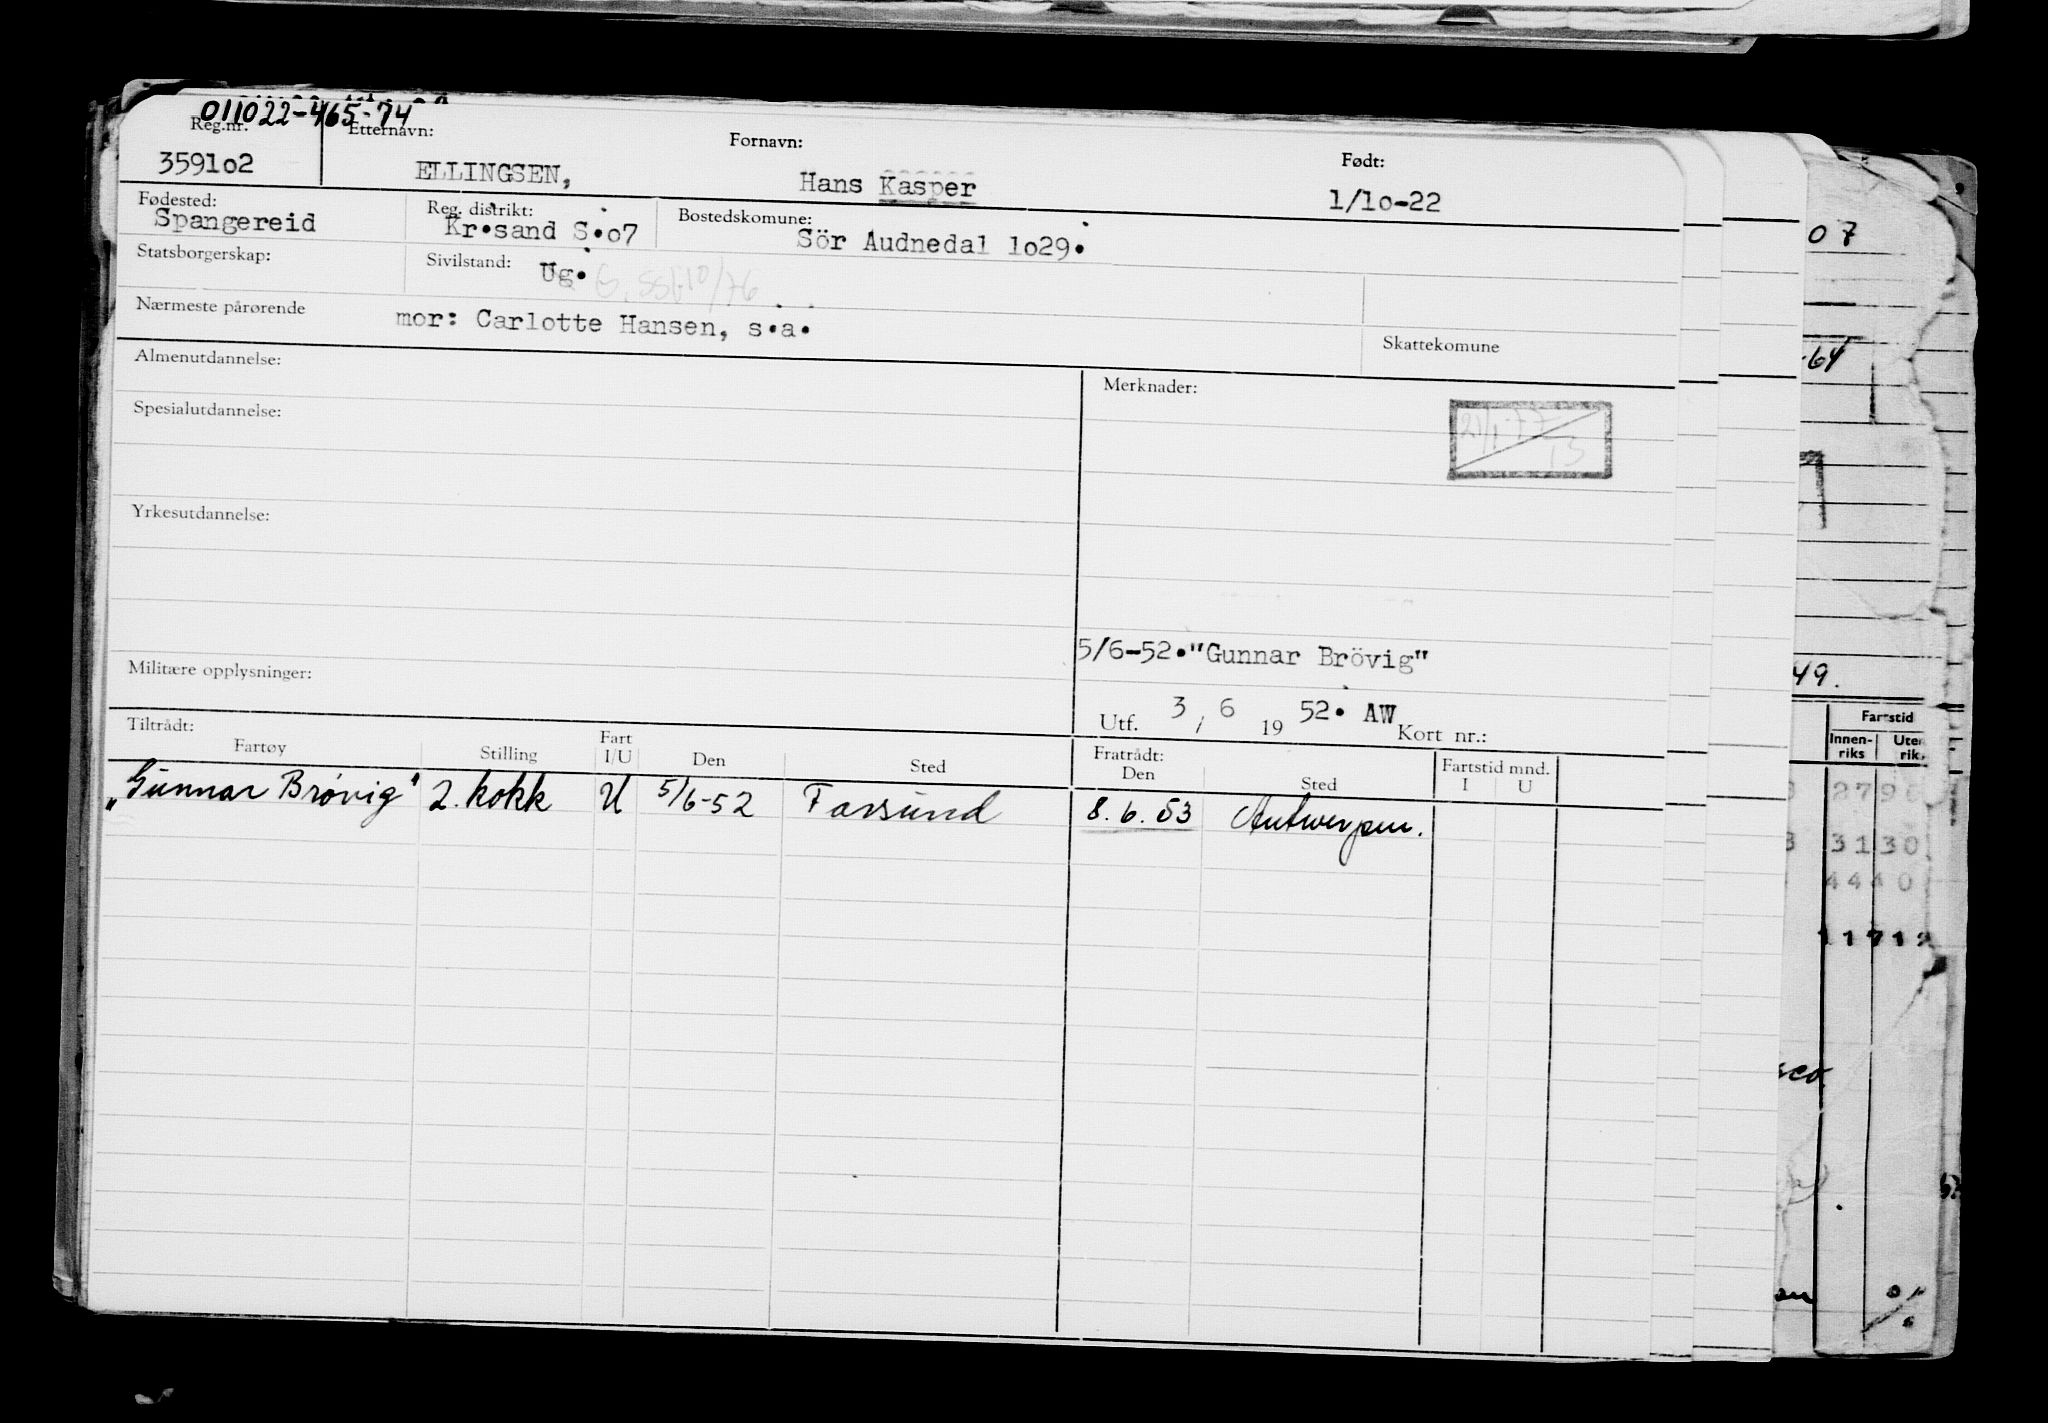 011022-465-74
Reg.nr. Etternavn: Fornavn: Født:
3591o2 ELLINGSEN, Hans Kasper 1/1o-22
Fødested: Reg. distrikt: Bostedskomune:
Spangereid Kr.sand S.o7 Sör Audnedal 1o29.
Statsborgerskap: Sivilstand: Ug.
Nærmeste pårørende mor: Carlotte Hansen, s.a.
Skattekomune
Almenutdannelse: Merknader:
Spesialutdannelse:
Yrkesutdannelse:
5/6-52."Gunnar Brövig"
Militære opplysninger:
Utf. 3 / 6 19 52. AW Kort nr.:
Tiltrådt: Fratrådt:
Fartøy Stilling Fart I/U Den Sted Den Sted Fartstid mnd. I U
„Gunnar Brövig" 2. kokk U 5/6-52 Farsund 8.6.53 Antwerpen.
07
-64
49.
Fartstid
Innen-riks